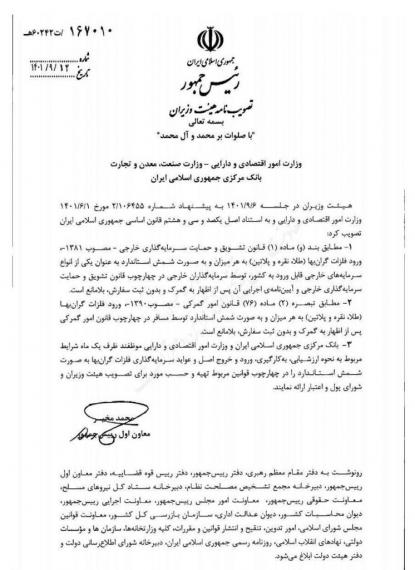 ۱۶۷۰۱۰ /ت۶۰۲۴۲هـ
شماره
۱۴۰۱/۹/۱۲
تاریخ
جمهوری اسلامی ایران
رئیس جمهور
تصویب نامه هیئت وزیران
بسمه تعالی
"با صلوات بر محمد و آل محمد"
وزارت امور اقتصادی و دارایی – وزارت صنعت، معدن و تجارت
بانک مرکزی جمهوری اسلامی ایران
هیئت وزیران در جلسه ۱۴۰۱/۹/۶ به پیشنهاد شماره ۲/۱۰۶۴۵۵ مورخ ۱۴۰۱/۶/۱
وزارت امور اقتصادی و دارایی و به استناد اصل یکصد و سی و هشتم قانون اساسی جمهوری اسلامی ایران
تصویب کرد:
۱- مطابق بند (و) ماده (۱) قانون تشویق و حمایت سرمایه‌گذاری خارجی – مصوب ۱۳۸۱-
ورود فلزات گران‌بها (طلا، نقره و پلاتین) به هر میزان و به صورت شمش استاندارد به عنوان یکی از انواع
سرمایه‌های خارجی قابل ورود به کشور، توسط سرمایه‌گذاران خارجی در چهارچوب قانون تشویق و حمایت
سرمایه‌گذاری خارجی و آیین‌نامه‌ی اجرایی آن پس از اظهار به گمرک و بدون ثبت سفارش، بلامانع است.
۲- مطابق تبصره (۲) ماده (۷۶) قانون امور گمرکی – مصوب ۱۳۹۰- ورود فلزات گران‌بها
(طلا، نقره و پلاتین) به هر میزان و به صورت شمش استاندارد توسط مسافر در چهارچوب قانون امور گمرکی
پس از اظهار به گمرک و بدون ثبت سفارش، بلامانع است.
۳- بانک مرکزی جمهوری اسلامی ایران و وزارت امور اقتصادی و دارایی موظفند ظرف یک ماه شرایط
مربوط به نحوه ارزشیابی، به‌کارگیری، ورود و خروج اصل و عواید سرمایه‌گذاری فلزات گران‌بها به صورت
شمش استاندارد را در چهارچوب قوانین مربوط تهیه و حسب مورد برای تصویب هیئت وزیران و
شورای پول و اعتبار ارائه نمایند.
محمد مخبر
معاون اول رییس‌جمهور
رونوشت به دفتر مقام معظم رهبری، دفتر رییس‌جمهور، دفتر رییس قوه قضاییه، دفتر معاون اول
رییس‌جمهور، دبیرخانه مجمع تشخیص مصلحت نظام، دبیرخانه ستاد کل نیروهای مسلح،
معاونت حقوقی رییس‌جمهور، معاونت امور مجلس رییس‌جمهور، معاونت اجرایی رییس‌جمهور،
دیوان محاسبات کشور، دیوان عدالت اداری، سازمان بازرسی کل کشور، معاونت قوانین
مجلس شورای اسلامی، امور تدوین، تنقیح و انتشار قوانین و مقررات، کلیه وزارتخانه‌ها، سازمان ها و مؤسسات
دولتی، نهادهای انقلاب اسلامی، روزنامه رسمی جمهوری اسلامی ایران، دبیرخانه شورای اطلاع‌رسانی دولت و
دفتر هیئت دولت ابلاغ می‌شود.